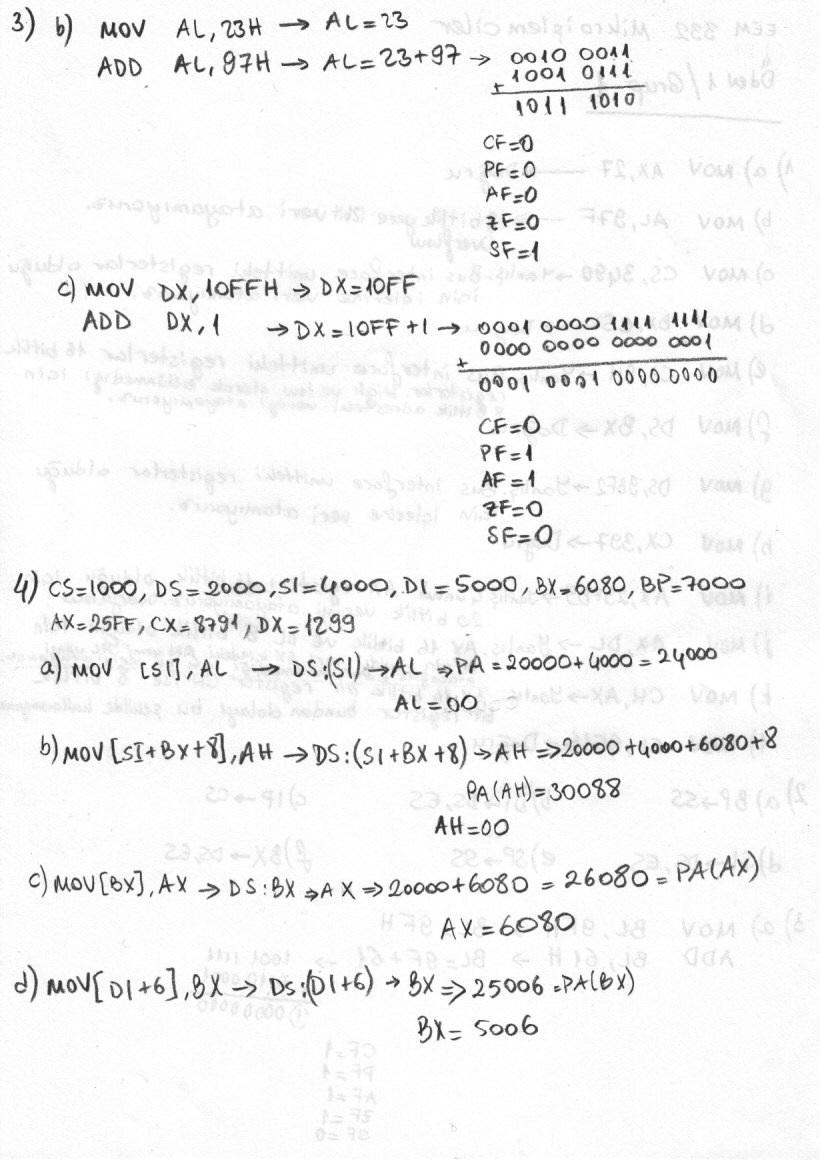 3) b) MOV AL, 23H → AL=23
ADD AL, 97H → AL=23+97 → 0010 0011
1001 0111
+
1011 1010
CF=0
PF=0
AF=0
ZF=0
SF=1
c) MOV DX, 10FFH → DX=10FF
ADD DX, 1 → DX=10FF+1 → 0001 0000 1111 1111
0000 0000 0000 0001
+
0001 0001 0000 0000
CF=0
PF=1
AF=1
ZF=0
SF=0
4) CS=1000, DS=2000, SI=4000, DI=5000, BX=6080, BP=7000
AX=25FF, CX=8791, DX=1299
a) MOV [SI], AL → DS:(SI) → AL ⇒ PA=20000+4000=24000
AL=00
b) MOV [SI+BX+8], AH → DS:(SI+BX+8) → AH ⇒ 20000+4000+6080+8
PA(AH)=30088
AH=00
c) MOV [BX], AX → DS:BX → AX ⇒ 20000+6080 = 26080 = PA(AX)
AX=6080
d) MOV [DI+6], BX → DS:(DI+6) → BX ⇒ 25006=PA(BX)
BX= 5006